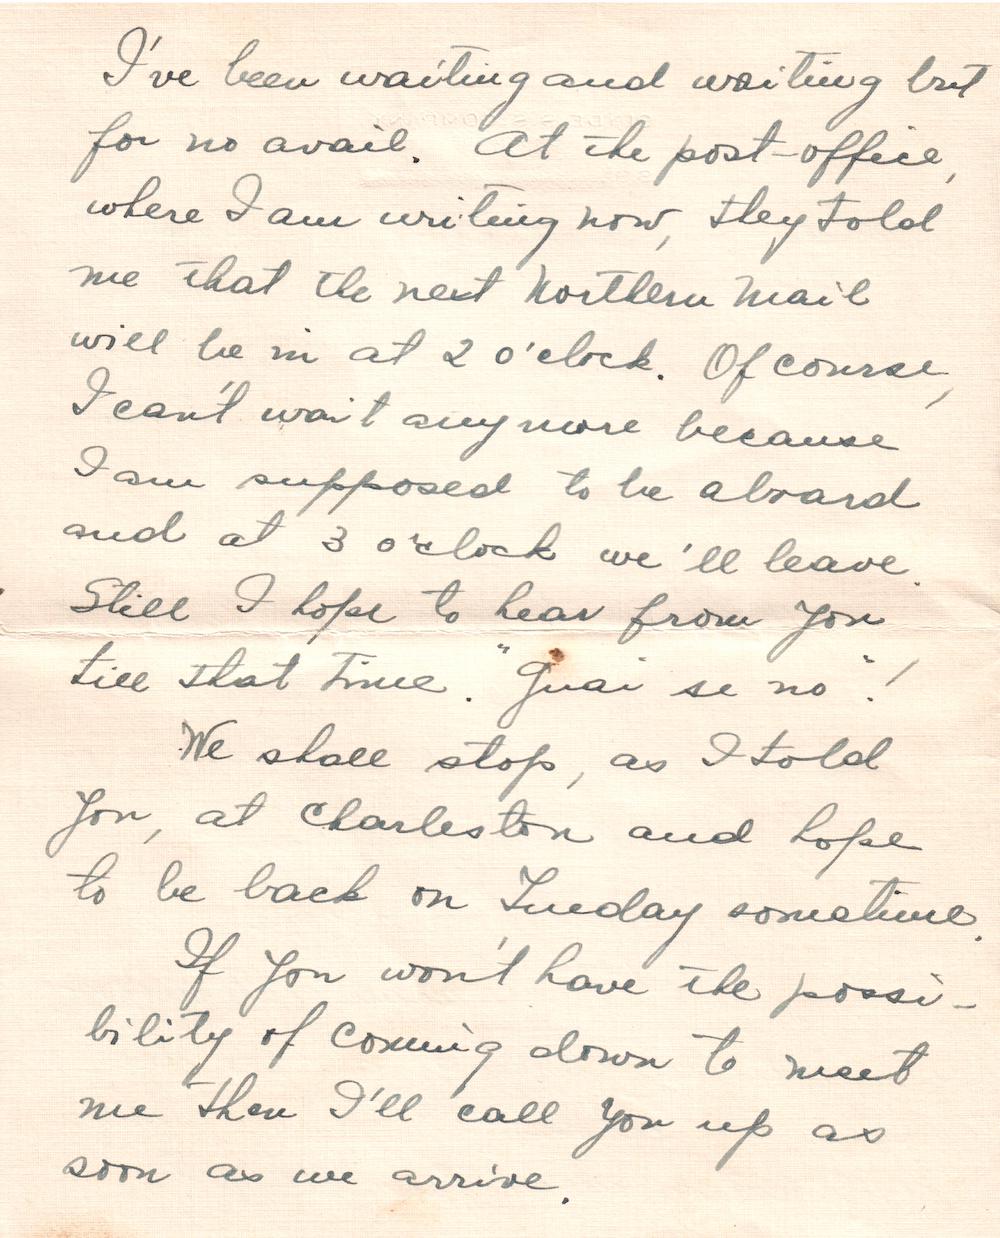 I've been waiting and waiting but
for no avail. At the post-office,
where I am writing now, they told
me that the next Northern Mail
will be in at 2 o'clock. Of course,
I can't wait anymore because
I am supposed to be aboard
and at 3 o'clock we'll leave.
Still I hope to hear from You
till that time. "Guai se no"!
We shall stop, as I told
You, at Charleston and hope
to be back on Tueday sometime.
If You won't have the possi-
bility of coming down to meet
me then I'll call You up as
soon as we arrive.